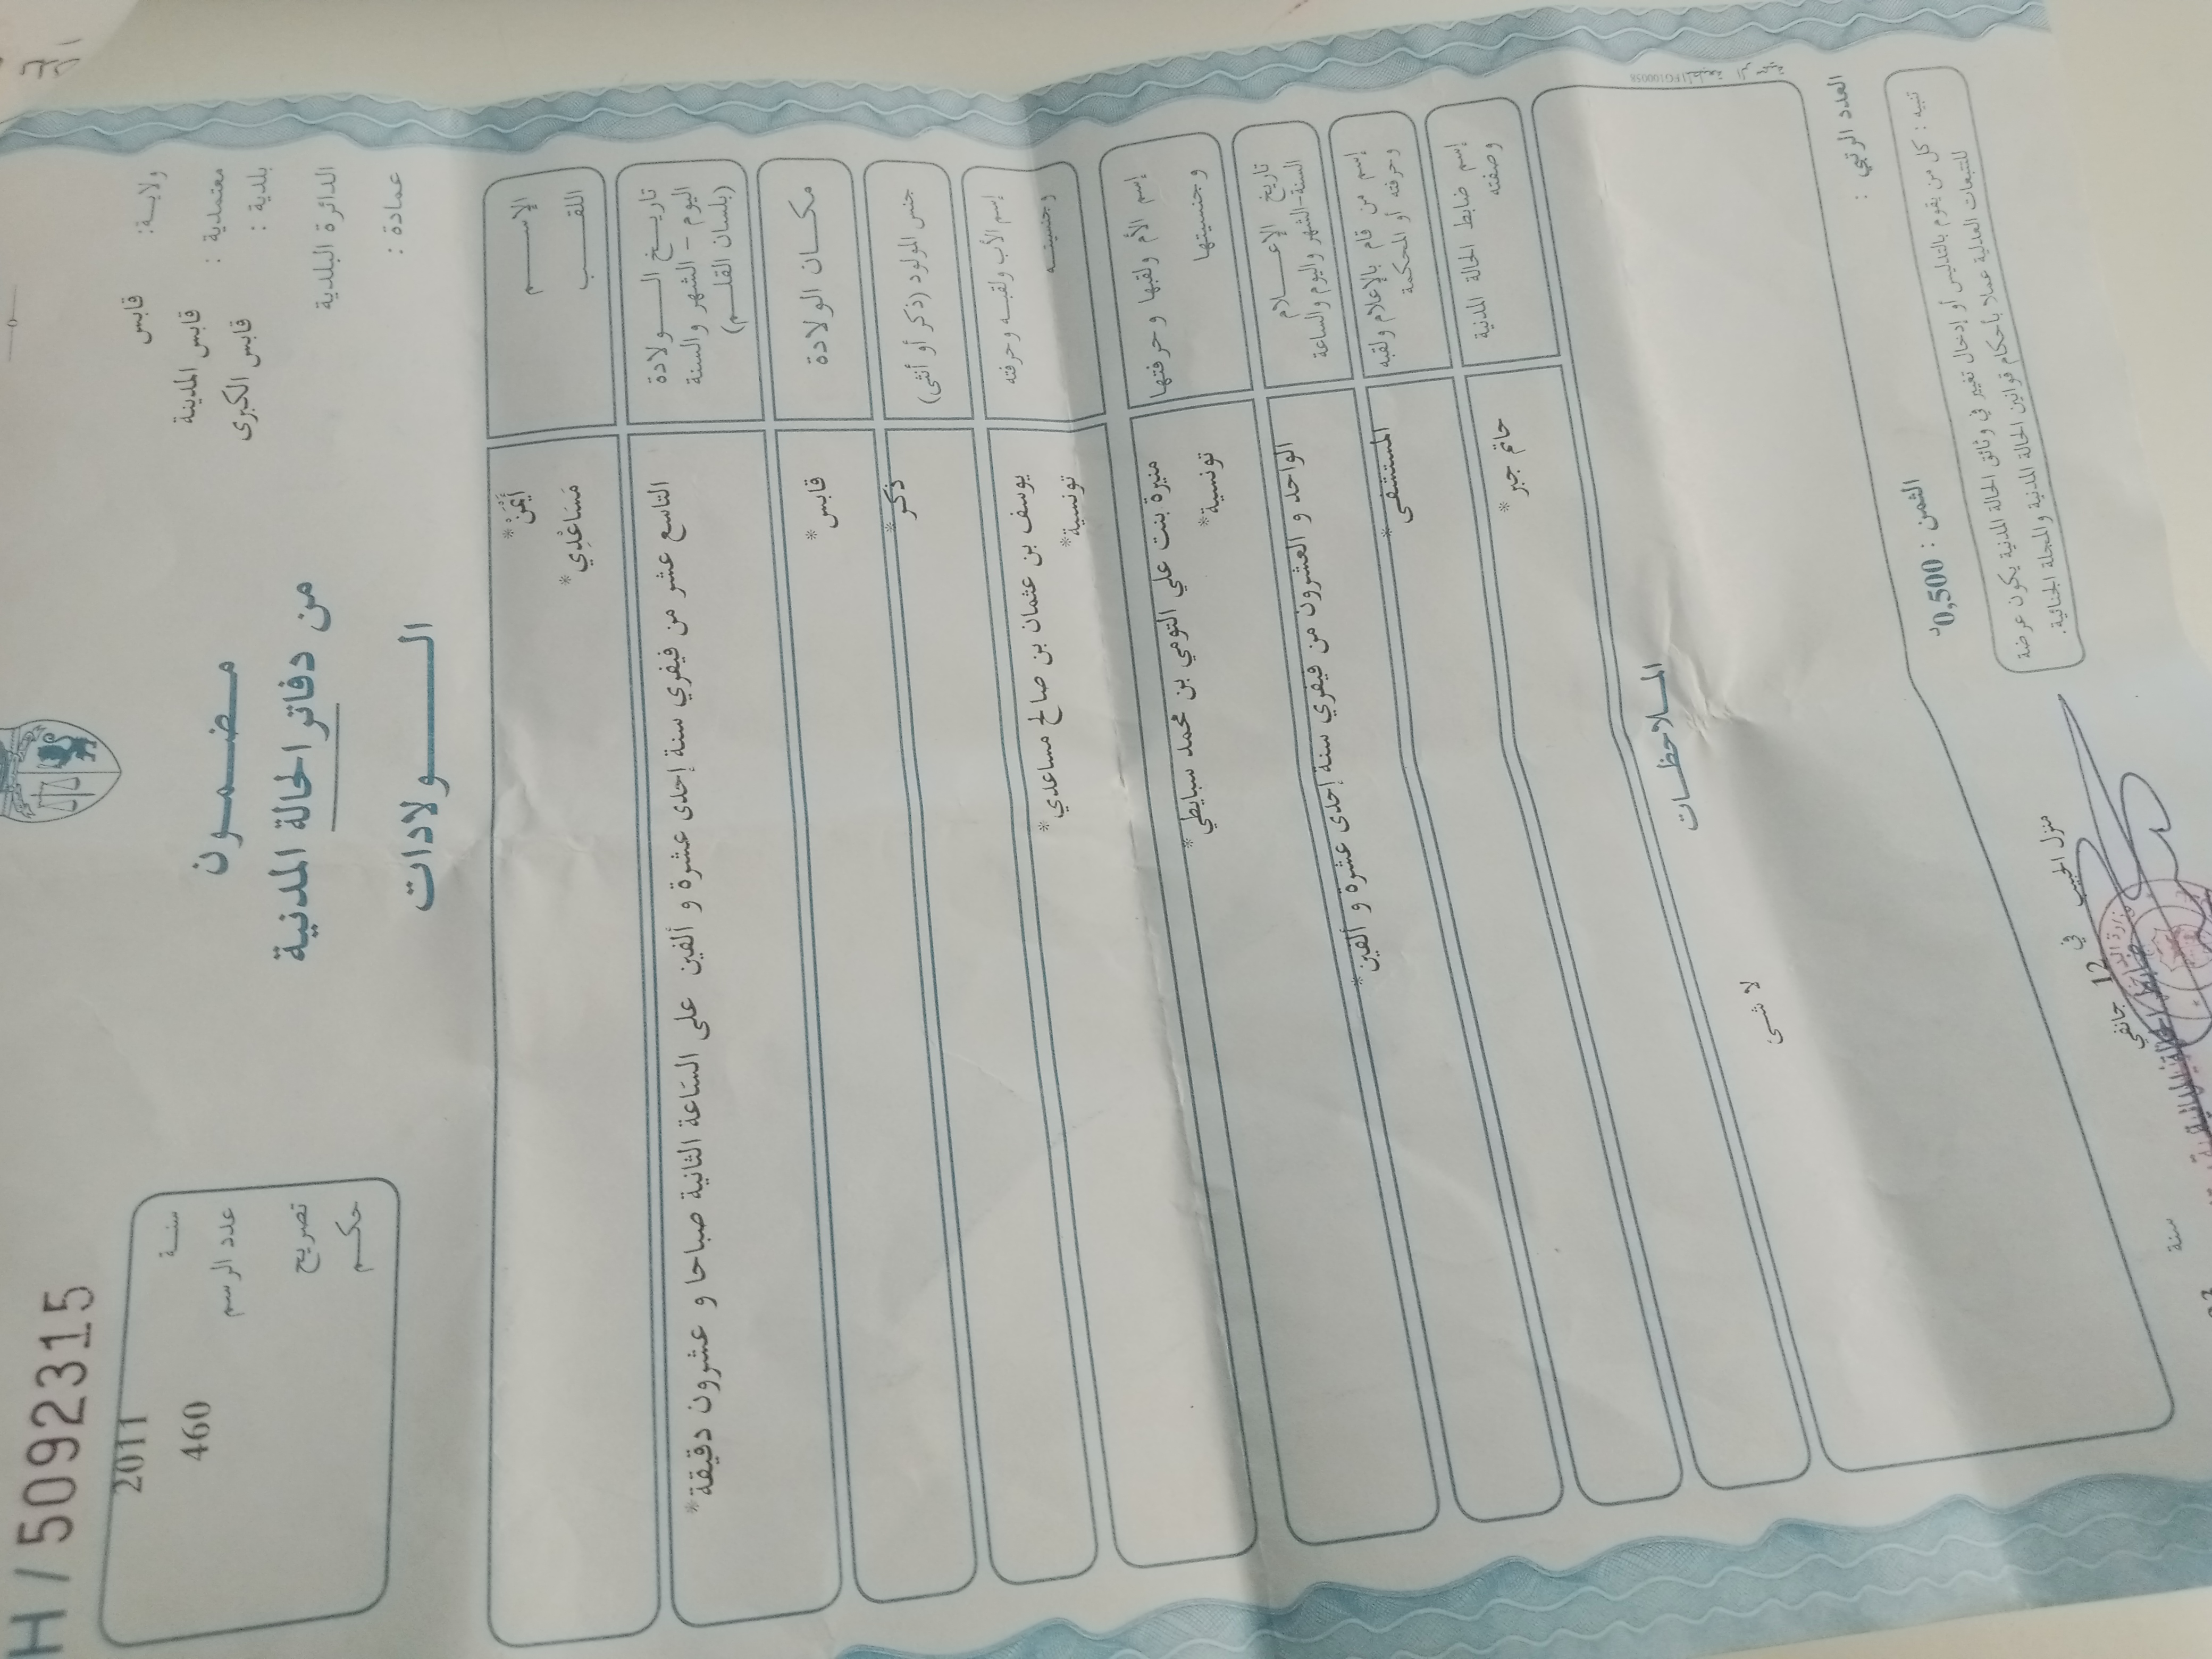 H / 5092315
ولايـة: قابس
معتمدية : قابس المدينة
بلدية : قابس الكبرى
الدائرة البلدية
عمادة :
مضمــون
من دفاتر الحالة المدنية
الــولادات
سنـة 2011
عدد الرسم 460
تصريح
حكـم
الإســـم أَيْمَنْ*
اللقـــب مَسَاعْدِي*
تاريـخ الــولادة
اليوم - الشهر والسنة
(بلسان القلـم)
التاسع عشر من فيفري سنة إحدى عشرة و ألفين على الساعة الثانية صباحا و عشرون دقيقة*
مكـان الولادة قابس*
جنس المولود (ذكر أو أنثى) ذكر*
إسم الأب ولقبـه وحرفته يوسف بن عثمان بن صالح مساعدي*
وجنسيتـه تونسية*
إسم الأم ولقبها وحرفتها منيرة بنت علي التومي بن محمد سبايطي*
وجنسيتها تونسية*
تاريخ الإعــلام
السنة-الشهر واليوم والساعة
الواحد و العشرون من فيفري سنة إحدى عشرة و ألفين*
إسم من قام بالإعلام ولقبه
وحرفته أو المحكمة
المستشفى*
إسم ضابط الحالة المدنية
وصفته
حاتم جبر*
المـلاحظـات
لا شئ
العدد الرتبي :
الثمن : 0,500د
تنبيه : كل من يقوم بالتدليس أو إدخال تغيير في وثائق الحالة المدنية يكون عرضة
للتتبعات العدلية عملا بأحكام قوانين الحالة المدنية والمجلة الجنائية.
منزل الحبيب في 12 جانفي
سنة